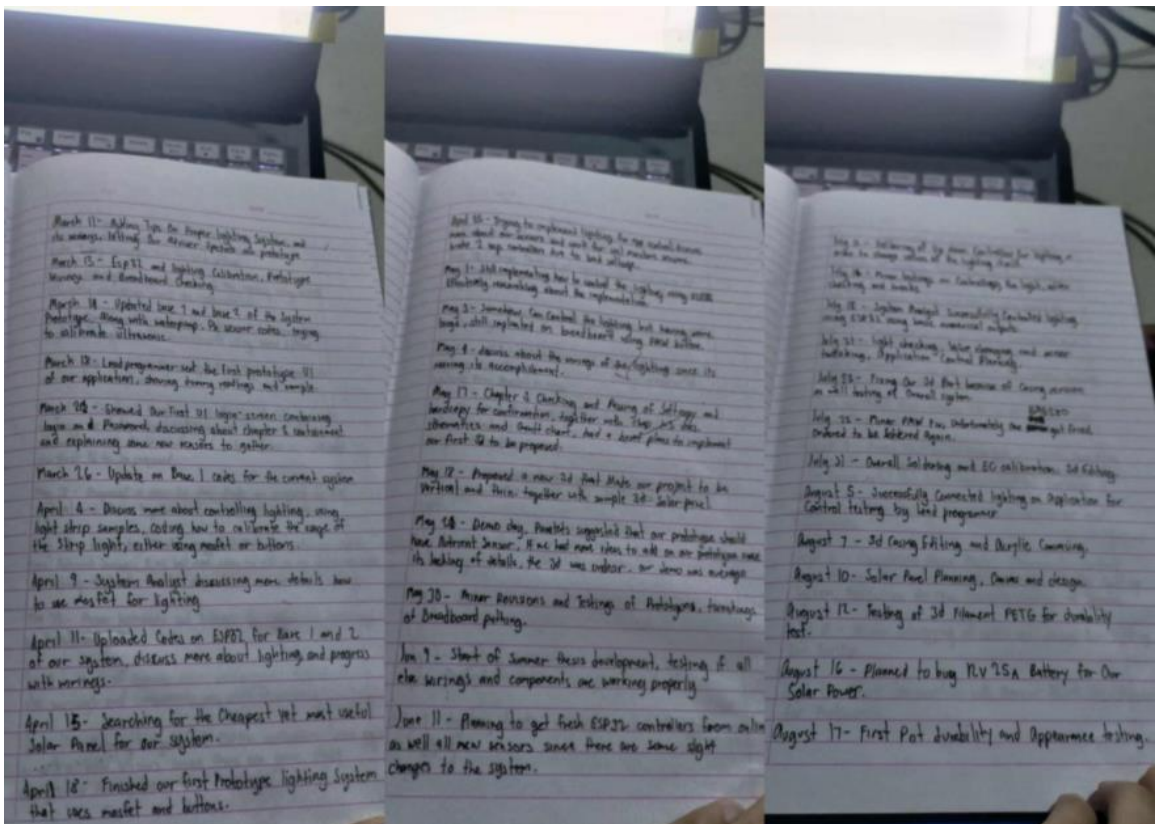 March 11 - Asking Tips on Proper Lighting System, and
its wirings, telling Our Adviser Update on prototype
March 13 - Esp32 and lighting Calibration, Prototype
Wirings and Breadboard Checking
March 18 - Updated base 1 and base 2 of the System
Prototype. Along with waterpump, Ph sensor codes, trying
to calibrate ultrasonic.
March 18 - Lead programmer sent the first prototype UI
of our application, showing readings and sample
March - Showed Our First UI login screen containing
login and Password, discussing about chapter
and explaining some new sensors to gather.
March 26 - Update on Base 1 codes for the current system
April 4 - Discuss more about controlling lighting, using
light strip samples, coding how to calibrate the range of
the strip light, either using mosfet or buttons.
April 9 - System Analyst discussing more details how
to use mosfet for lighting
April 11 - Uploaded Codes on ESP32 for Base 1 and 2
of our system, discuss more about lighting, and progress
with wirings.
April 15 - Searching for the Cheapest yet most useful
Solar Panel for our system.
April 18 - Finished our first Prototype lighting System
that uses mosfet and buttons.
Trying to implement lighting for app control, discuss
more about our sensors and
2 esp controllers due to
May 1 - Still implementing how to control the lighting using ESP32
effectively, researching about the implementation.
May 3 - Somehow, Can Control the lighting but having some
bugs, still implemented on breadboard using buttons.
May 4 - discuss about the wirings of the lighting since its
wiring its accomplishment.
May 17 - Chapter Checking and Passing of Softcopy and
hardcopy for confirmation, together with
schematics and Gantt chart, had a brief plans to implement
our first 3d to be proposed.
May 18 - Proposed a new 3d that Made our project to be
vertical and thin, together with sample 3d Solar panel
May - Demo day, Panelists suggested that our prototype should
have Nutrient Sensor, If we had more ideas to add on our prototype since
its lacking of details, the 3d was unclear, our demo was average
May 30 - Minor Revisions and Testings of Prototyping,
of Breadboard
Jun 9 - Start of Summer thesis development, testing if all
the wirings and components are working properly
June 11 - Planning to get fresh ESP32 controllers from online
as well all new sensors since there are some slight
changes to the system.
Soldering of Controller for lighting, in
order to change values of the lighting
Minor testings on Controlling the light,
checking and
July 18 - System Analyst Successfully Controlled lighting
using ESP32 using basic numerical outputs
July 21 - light checking, Value changing, and sensor
tweaking, Application Control Planning.
July 23 - Fixing Our 3d Part because of Casing
as well testing of Overall system.
July 25 - Minor Fix, Unfortunately One got fried
Ordered to be soldered Again.
July 31 - Overall Soldering and EC calibration. 3d Editing
August 5 - Successfully Connected lighting on Application for
Control testing by lead programmer
August 7 - 3d Casing Editing and Acrylic Canvasing.
August 10 - Solar Panel Planning, Canvas and design
August 12 - Testing of 3d Filament PETG for durability
test.
August 16 - Planned to buy 12V 25A Battery for Our
Solar Power.
August 17 - First Pot durability and Appearance testing.